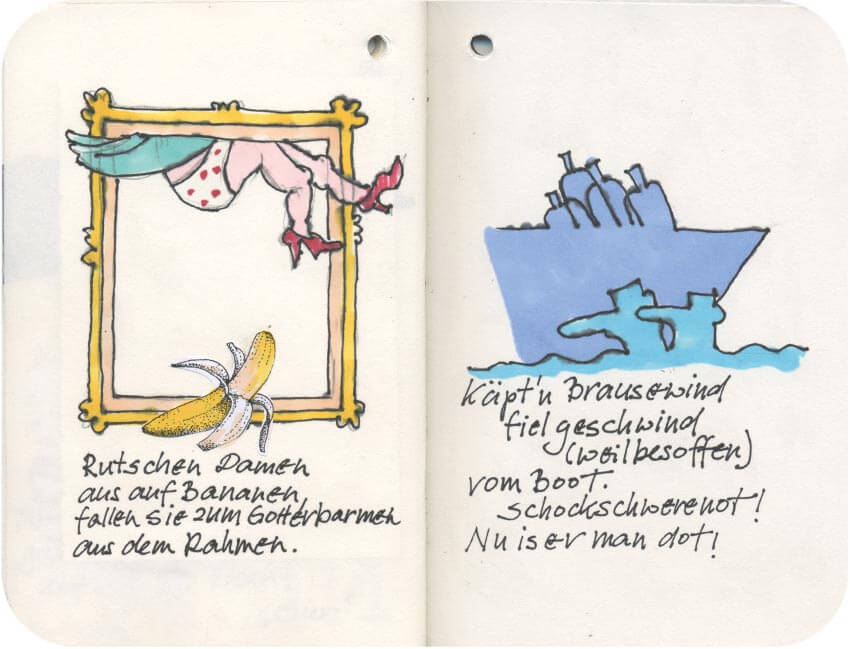 Rutschen Damen
aus auf Bananen,
fallen sie zum Gotterbarmen
aus dem Rahmen.
Käpt'n Brausewind
fiel geschwind
(weil besoffen)
vom Boot.
Schockschwerenot!
Nu is er man dot!